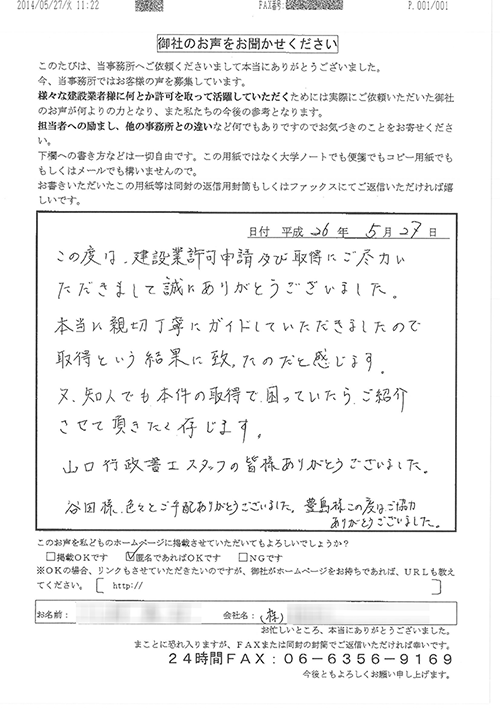 2014/05/27/火 11:22
FAX番号:
P.001/001
御社のお声をお聞かせください
このたびは、当事務所へご依頼くださいまして本当にありがとうございました。
今、当事務所ではお客様の声を募集しています。
様々な建設業者様に何とか許可を取って活躍していただくためには実際にご依頼いただいた御社
のお声が何よりの力となり、また私たちの今後の参考となります。
担当者への励まし、他の事務所との違いなど何でもありですのでお気づきのことをお寄せくださ
い。
下欄への書き方などは一切自由です。この用紙ではなく大学ノートでも便箋でもコピー用紙でも
もしくはメールでも構いませんので。
お書きいただいたこの用紙等は同封の返信用封筒もしくはファックスにてご返信いただければ嬉
しいです。
日付 平成 26 年 5月 27 日
この度は、建設業許可申請及び取得にご尽力い
ただきまして誠にありがとうございました。
本当に親切丁寧にガイドしていただきましたので
取得という結果に致ったのだと感じます。
又、知人でも本件の取得で困っていたら、ご紹介
させて頂きたく存じます。
山口行政書士スタッフの皆様ありがとうございました。
谷田様、色々とご手配ありがとうございました。豊島様この度はご協力
ありがとうございました。
このお声を私どものホームページに掲載させていただいてもよろしいでしょうか?
□掲載OKです ☑匿名であればOKです □NGです
※OKの場合、リンクもさせていただきたいのですが、御社がホームページをお持ちであれば、URLも教え
てください。[ http:// ]
お名前: 会社名: (株)
お忙しいところ、本当にありがとうございました。
まことに恐れ入りますが、FAXまたは同封の封筒でご返信いただければ幸いです。
24時間FAX:06-6356-9169
今後ともよろしくお願い申し上げます。